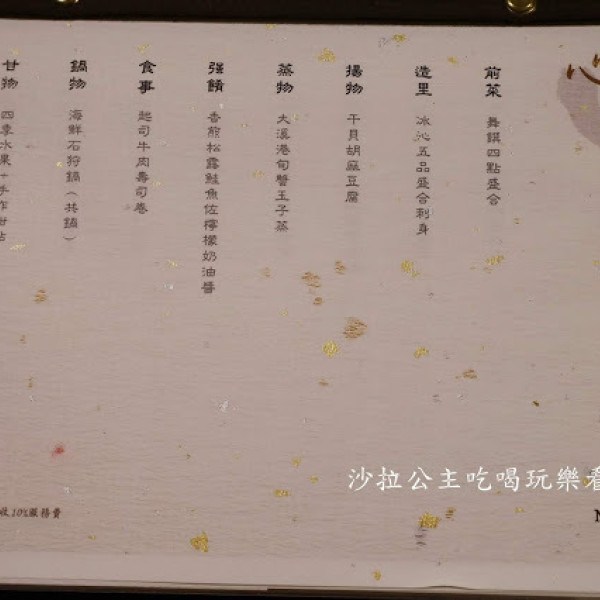 前菜
舞饌四點盛合
造里
冰沁五品盛合刺身
揚物
干貝胡麻豆腐
蒸物
大溪港旬蟹玉子蒸
强餚
香煎松露鮭魚佐檸檬奶油醬
食事
起司牛肉壽司卷
鍋物
海鮮石狩鍋(共鍋)
甘物
四季水果+手作甜點
收10%服務費
沙拉公主吃喝玩樂看
N